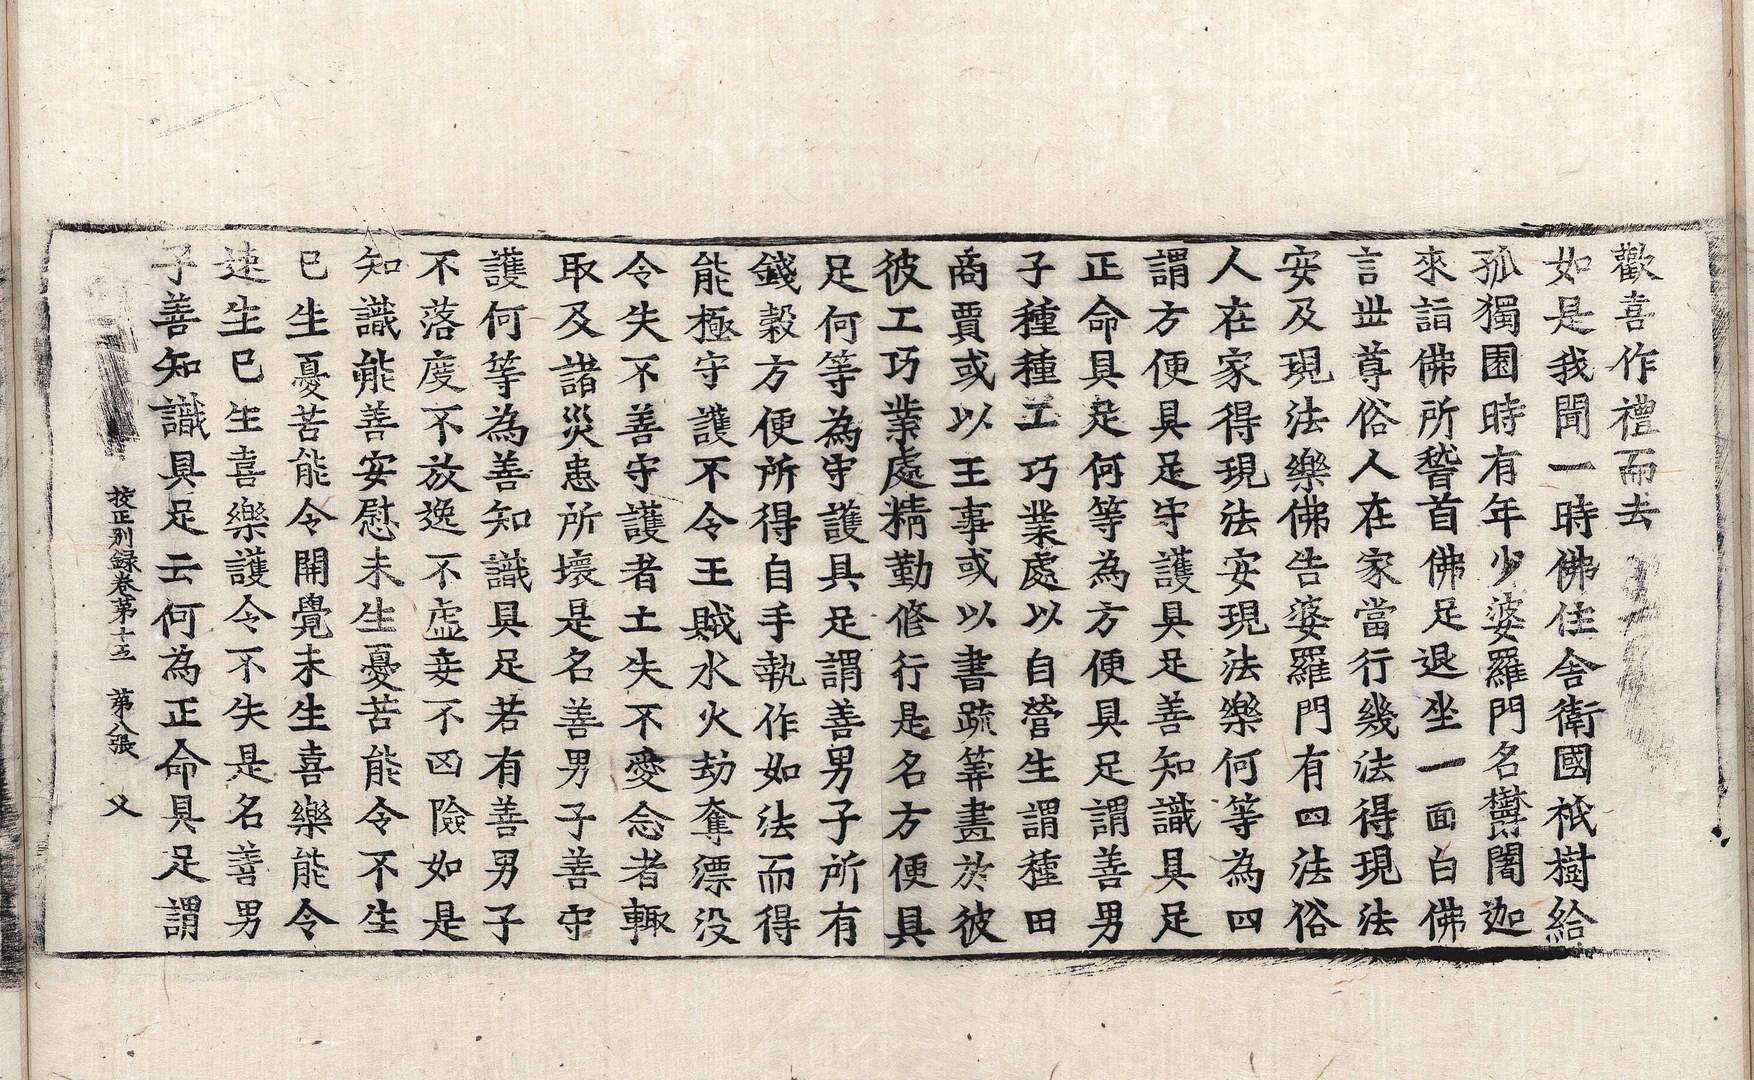 歡喜作禮而去
如是我聞一時佛住舍衛國祇樹給
孤獨園時有年少婆羅門名欝闍迦
來詣佛所稽首佛足退坐一面白佛
言世尊俗人在家當行幾法得現法
安及現法樂佛告婆羅門有四法俗
人在家得現法安現法樂何等為四
謂方便具足守護具足善知識具足
正命具足何等為方便具足謂善男
子種種工巧業處以自營生謂種田
商賈或以王事或以書疏筭畫於彼
彼工巧業處精勤修行是名方便具
足何等為守護具足謂善男子所有
錢穀方便所得自手執作如法而得
能極守護不令王賊水火劫奪漂没
令失不善守護者亡失不愛念者輙
取及諸災患所壞是名善男子善守
護何等為善知識具足若有善男子
不落度不放逸不虛妄不凶險如是
知識能善安慰未生憂苦能令不生
已生憂苦能令開覺未生喜樂能令
速生已生喜樂護令不失是名善男
子善知識具足云何為正命具足謂
校正別録卷第十五 第八張 乂